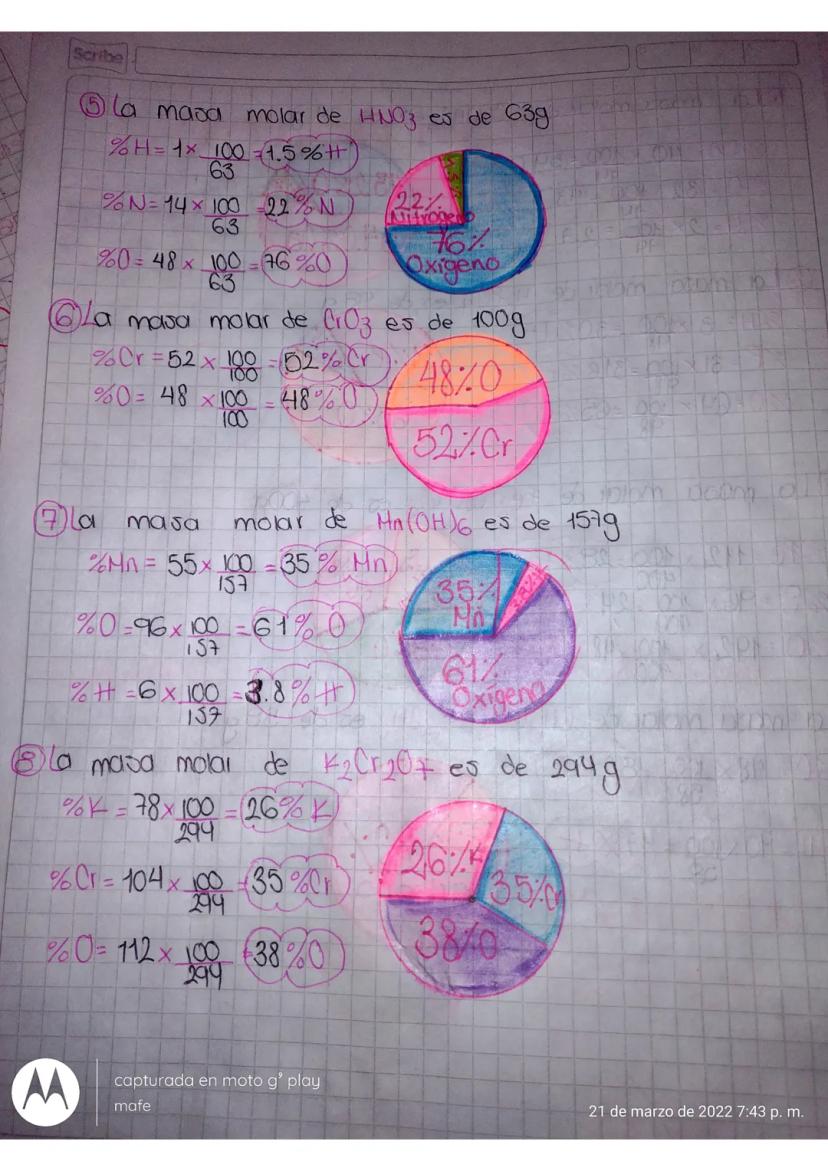 Scribe
⑤ La masa molar de HNO3 es de 63g
%H = 1 × 100/63 = 1.5%H
%N = 14 × 100/63 = 22%N
%O = 48 × 100/63 = 76%O
22% Nitrogeno
76% Oxigeno
⑥ La masa molar de CrO3 es de 100g
%Cr = 52 × 100/100 = 52% Cr
%O = 48 × 100/100 = 48% O
48%O
52%Cr
⑦ La masa molar de Mn(OH)6 es de 157g
%Mn = 55 × 100/157 = 35% Mn
%O = 96 × 100/157 = 61% O
%H = 6 × 100/157 = 3.8% H
35% Mn
61% Oxigeno
⑧ La masa molar de K2Cr2O7 es de 294g
%K = 78 × 100/294 = 26% K
%Cr = 104 × 100/294 = 35%Cr
%O = 112 × 100/294 = 38%O
26%K
35%Cr
38%O
capturada en moto g⁹ play
mafe
21 de marzo de 2022 7:43 p. m.